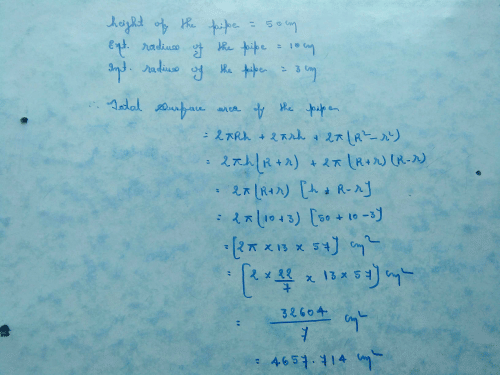 height of the pipe = 50 cm
Ext. radius of the pipe = 10 cm
Int. radius of the pipe = 3 cm
∴ Total surface area of the pipe
= 2πRh + 2πrh + 2π(R² - r²)
= 2πh(R + r) + 2π(R + r)(R - r)
= 2π(R + r) [h + R - r]
= 2π(10 + 3) [50 + 10 - 3]
= [2π × 13 × 57] cm²
= [2 × 22/7 × 13 × 57] cm²
= 32604/7 cm²
= 4657.714 cm²